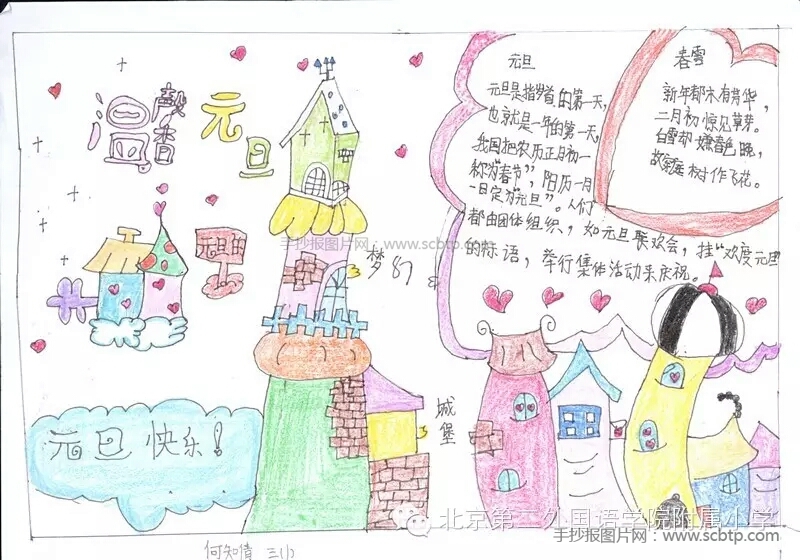 温馨
元旦
元旦
元旦是指岁首的第一天,
也就是一年的第一天,
我国把农历正月初一
称为“春节”,阳历一月
一日定为“元旦”。人们
都由团体组织,如元旦联欢会,挂“欢度元旦
的标语,举行集体活动来庆祝。
春雪
新年都未有芳华,
二月初惊见草芽。
白雪却嫌春色晚,
故穿庭树作飞花。
元旦的
手抄报图片网:www.scbtp.com
梦幻
城堡
元旦快乐!
北京第二外国语学院附属小学
手抄报图片网:www.scbtp.com